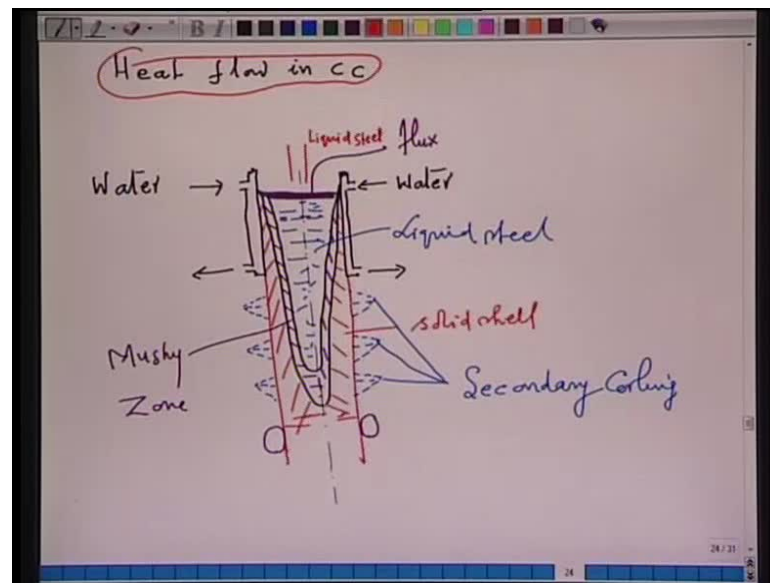 B I
Heat flow in CC
Liquid steel
flux
Water
Water
Liquid steel
solid shell
Mushy
Zone
Secondary Cooling
24/31
24